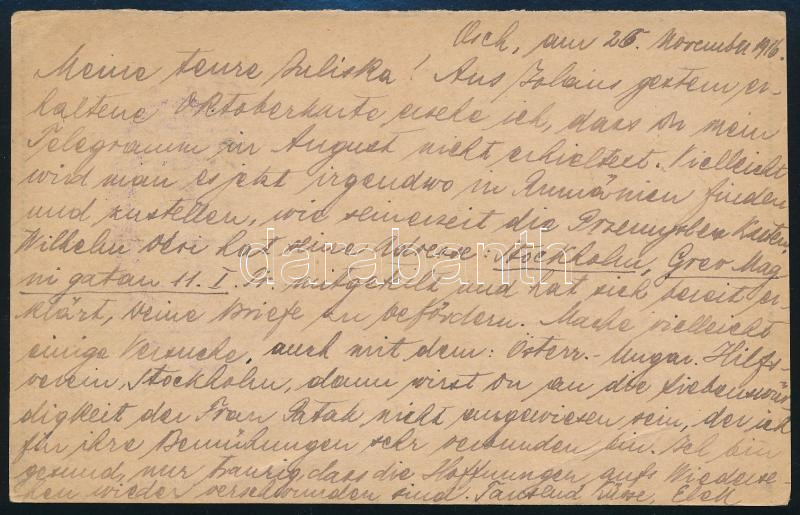 Osch, am 26. November 1916.
Meine teure Juliska! Aus Deiner gestern er-
haltene Oktoberkarte ersehe ich, dass Du mein
Telegramm im August nicht erhieltest. Vielleicht
wird man es jetzt irgendwo in Rumänien finden
und zustellen, wie seinerzeit die Przemysler Karten.
Wilhelm hat seine Adresse: Stockholm, Grev Mag
ni gatan 11. I. Dir mitgeteilt und hat sich bereit er-
klärt, Deine Briefe zu befördern. Mache vielleicht
einige Versuche, auch mit dem: Österr.- Ungar. Hilfs-
verein, Stockholm, dann wirst Du an die Liebenswür
digkeit der Frau Patak nicht angewiesen sein, der ich
für ihre Bemühungen sehr verbunden bin. Ich bin
gesund, nur traurig, dass die Hoffnungen aufs Wiederse-
hen wieder verschwunden sind. Tausend Küsse,
darabanth